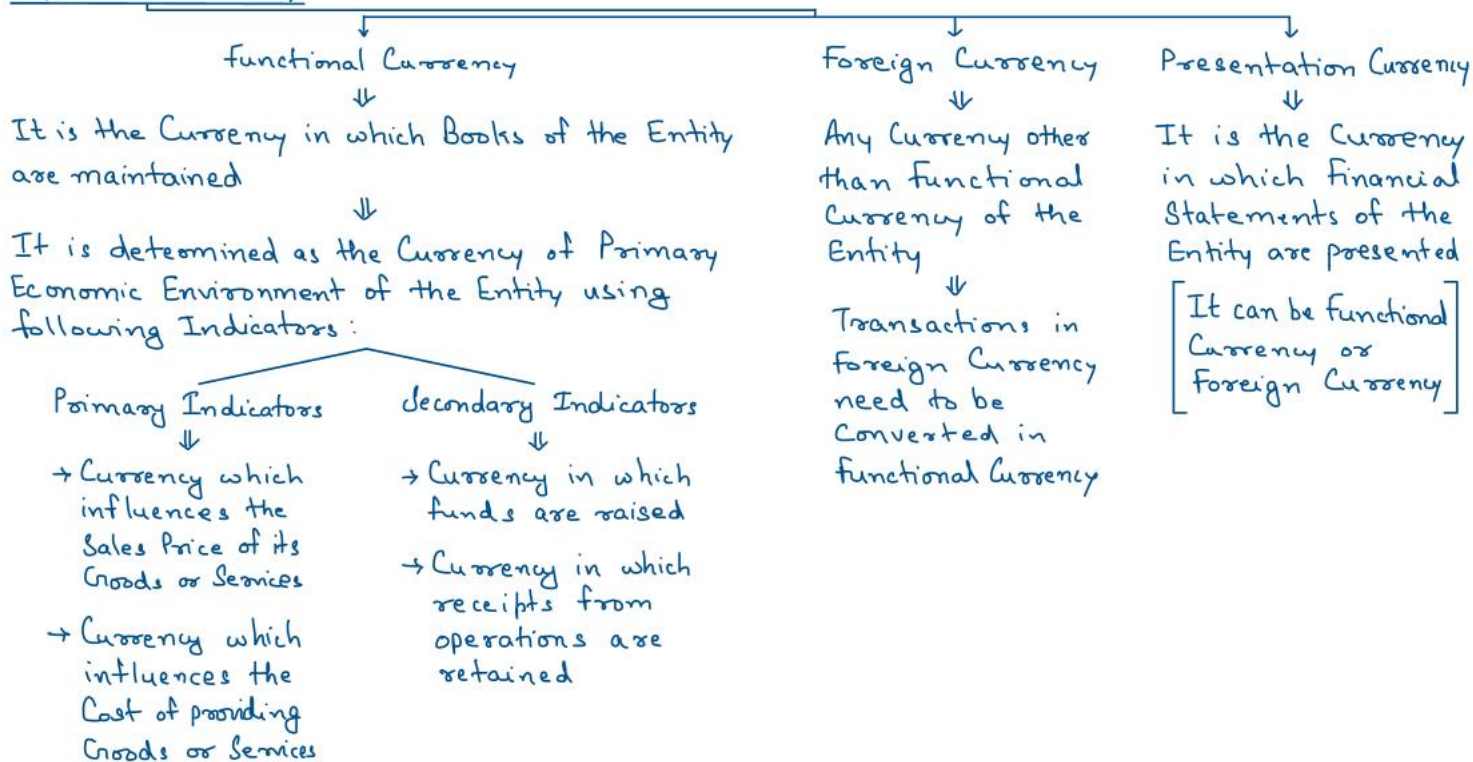 Functional Currency
It is the Currency in which Books of the Entity
are maintained
It is determined as the Currency of Primary
Economic Environment of the Entity using
following Indicators:
Primary Indicators
→ Currency which
influences the
Sales Price of its
Goods or Services
→ Currency which
influences the
Cost of providing
Goods or Services
Secondary Indicators
→ Currency in which
funds are raised
→ Currency in which
receipts from
operations are
retained
Foreign Currency
Any Currency other
than Functional
Currency of the
Entity
Transactions in
Foreign Currency
need to be
Converted in
Functional Currency
Presentation Currency
It is the Currency
in which Financial
Statements of the
Entity are presented
[It can be Functional
Currency or
Foreign Currency]